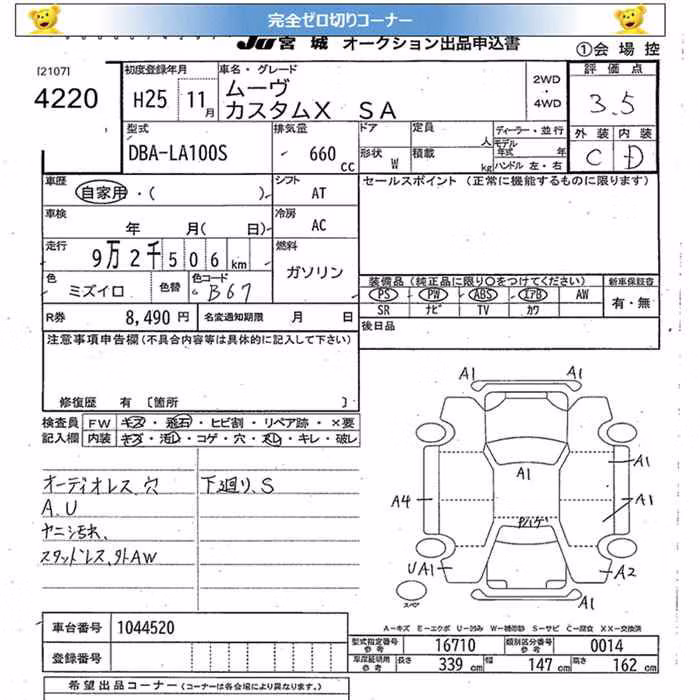 完全ゼロ切りコーナー
JU宮城 オークション出品申込書
①会場控
[2107]
4220
初度登録年月
H25 11月
車名・グレード
ムーヴ
カスタムX SA
2WD
・
4WD
評価点
3.5
外装 内装
C D
型式
DBA-LA100S
排気量
660 cc
ドア
形状 W
定員 人
積載 kg
ディーラー・並行
モデル年式 年
ハンドル 左・右
車歴
自家用・( )
シフト
AT
セールスポイント (正常に機能するものに限ります)
車検
年 月(日)
冷房
AC
走行
9万2千506km
燃料
ガソリン
色
ミズイロ
色替
色コード
B67
装備品 (純正品に限り○をつけてください)
PS PW ABS エアB AW
SR ナビ TV カワ
新車保証書
有・無
R券 8,490円
名変通知期限 月 日
後日品
注意事項申告欄(不具合内容等は具体的に記入して下さい)
修復歴 有 〔箇所 〕
検査員
記入欄
FW キズ・飛石・ヒビ割・リペア跡・×要
内装 キズ・汚レ・コゲ・穴・スレ・キレ・破レ
オーディオレス、穴
A.U
スタッドレス、外AW
下廻り、S
A1
A1
A1
A1
A4
A1
ヤハゲ
UA1
A2
A1
スペア
A-キズ E-エクボ U-凹み W-補修跡 S-サビ C-腐食 XX-交換済
車台番号 1044520
登録番号
型式指定番号 参考 16710
類別区分番号 参考 0014
車庫証明用 参考 長さ 339cm 幅 147cm 高さ 162cm
希望出品コーナー (コーナーは各会場により異なります。)